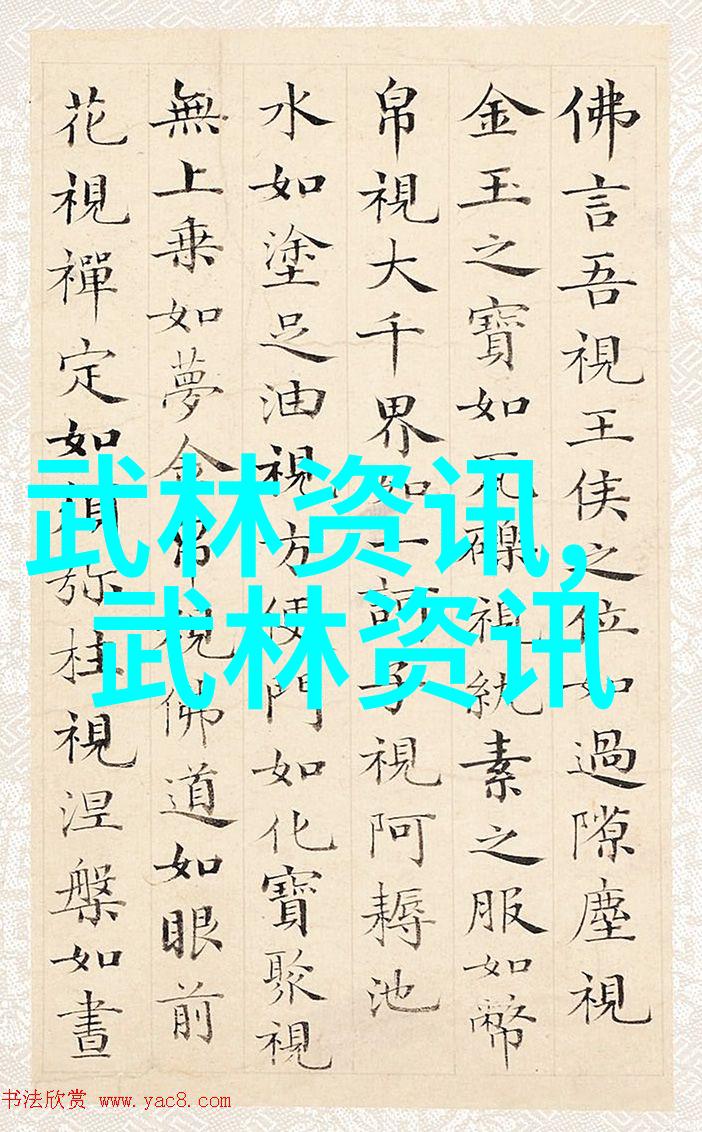 佛言吾視王侯之位如過隙塵視
金玉之寶如瓦礫視紈素之服如幣
帛視大千界如一訶子視阿耨池
水如塗足油視方便門如化寶聚視
無上乗如夢金帛視佛道如眼前
花視禪定如須弥柱視涅槃如晝
武林资讯,
武林资讯
书法欣赏 www.yac8.com